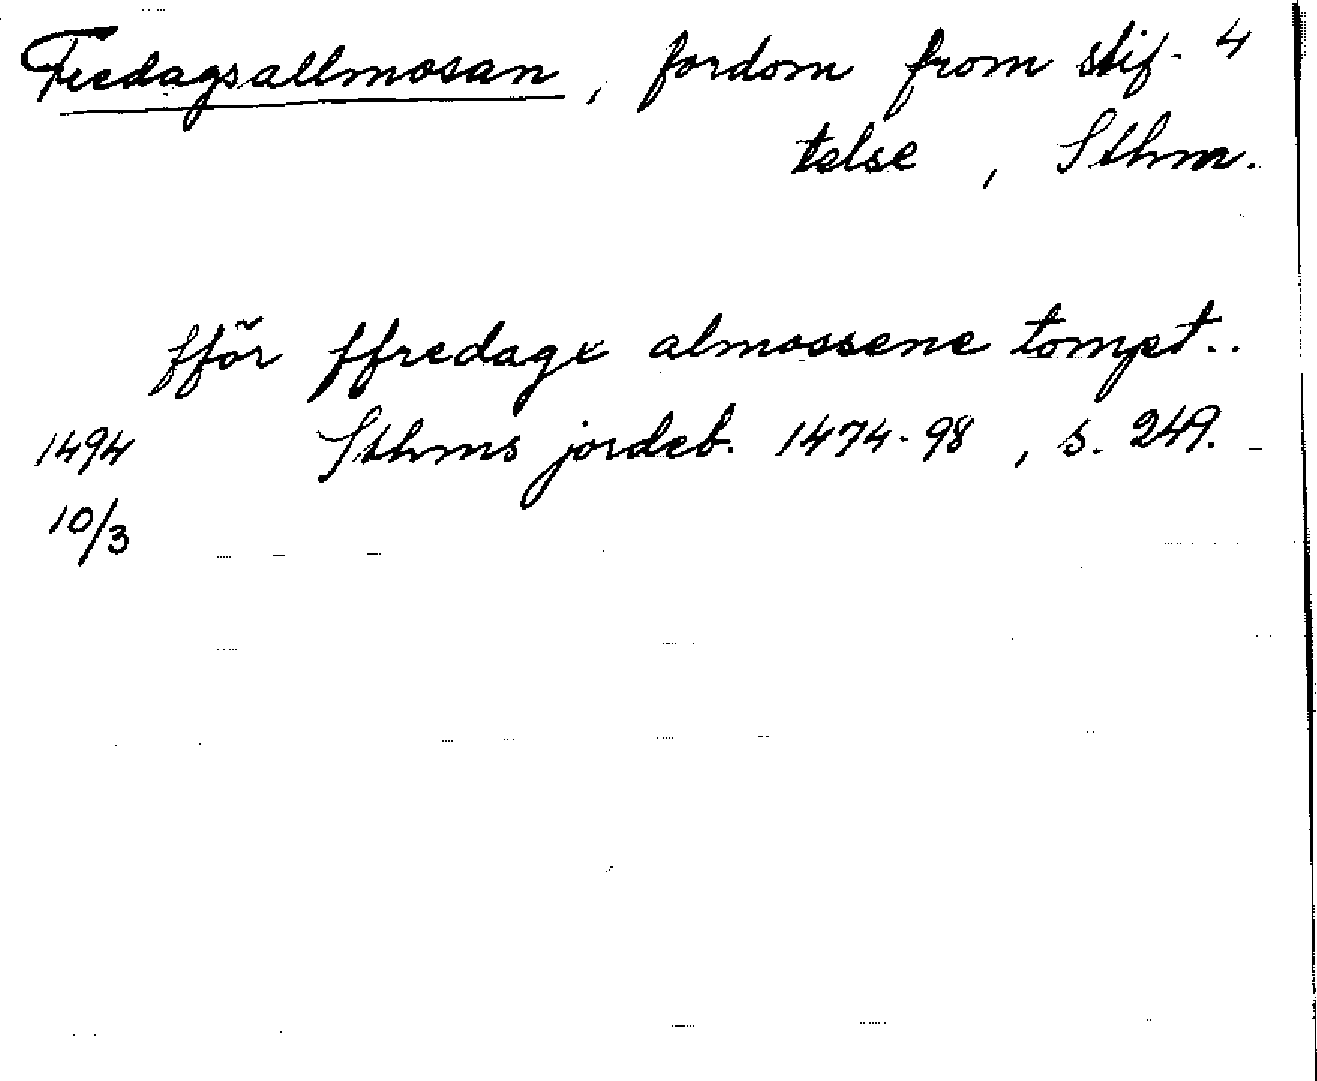 Fredagsallmosan, fordom from stif- 4
telse, Sthm.
fför ffredagx almossene tompt..
1494 Sthms jordeb. 1474-98, s. 249.
10/3